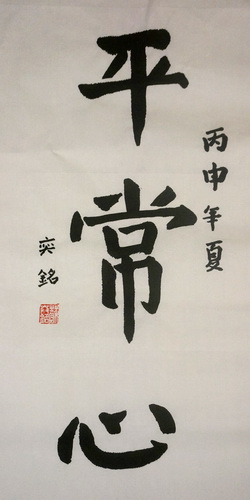 丙申年夏
平常心
奕銘